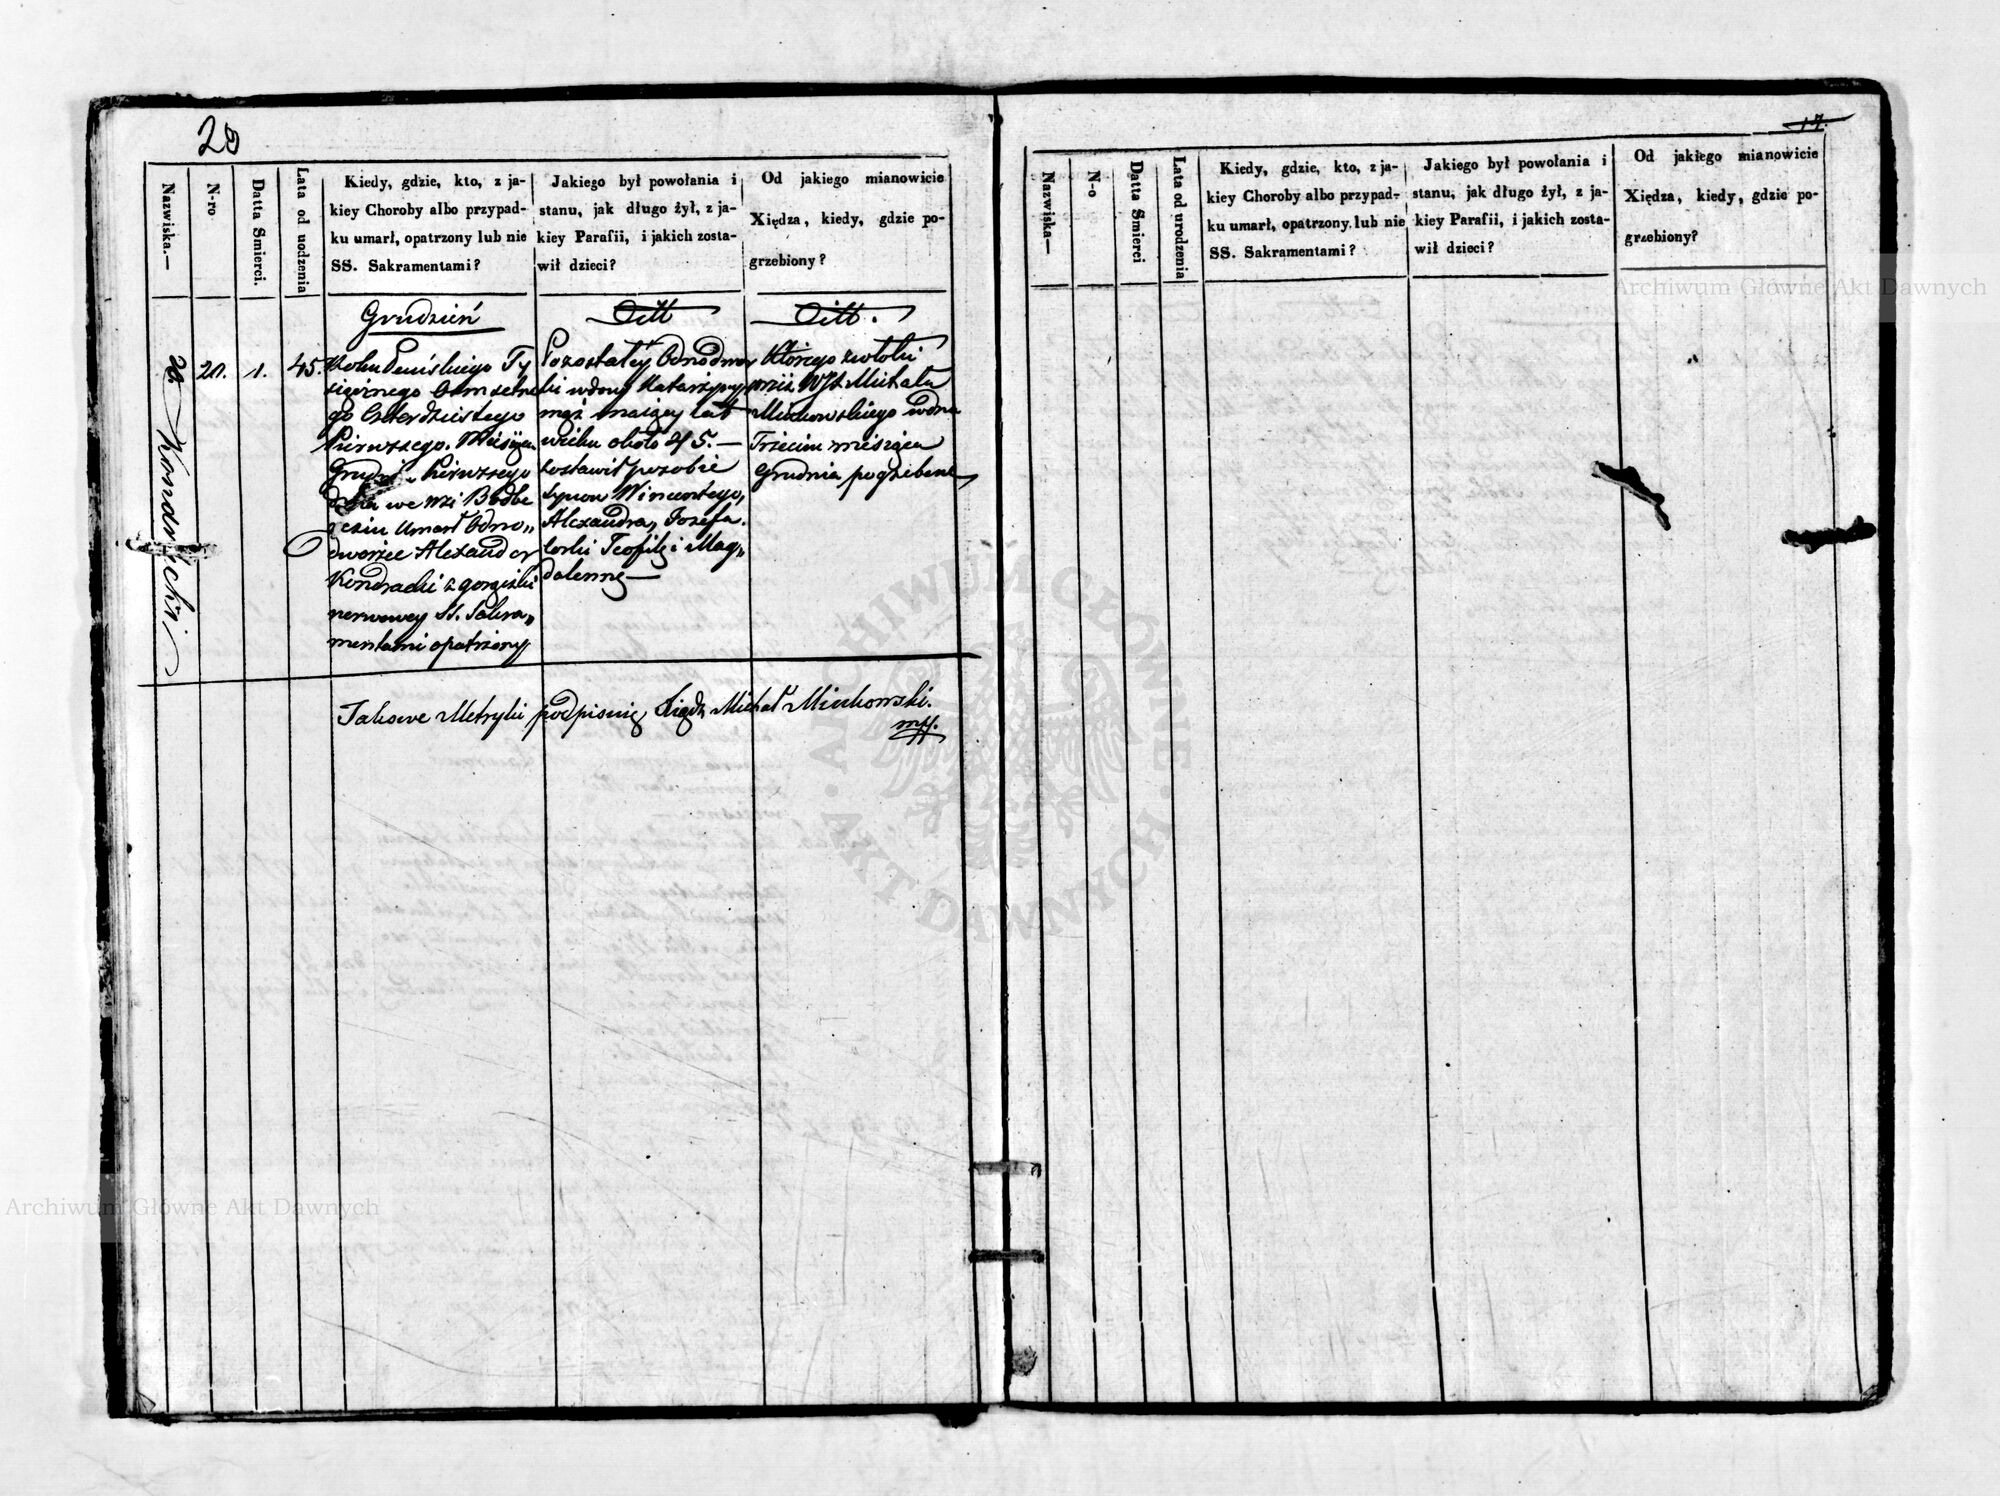 20
Nazwiska.—
N-ro
Datta Smierci.
Lata od uodzenia
Kiedy, gdzie, kto, z ja-
kiey Choroby albo przypad-
ku umarł, opatrzony lub nie
SS. Sakramentami?
Jakiego był powołania i
stanu, jak długo żył, z ja-
kiey Parafii, i jakich zosta-
wił dzieci?
Od jakiego mianowicie
Xiędza, kiedy, gdzie po-
grzebiony?
Grudzień
Ditt
Ditt.
20.
1.
45.
Roku Pańskiego Ty
siącznego Ośmsetne
go Czterdziestego
Pierwszego. Miesiąca
Grud Pierwszego
dnia we wsi
umarł Odno„
dworzec Alexander
Kondracki z gorączki
nerwowey SS. Sakra„
mentami opatrzony
Pozostałey Odnodwor
ki wdowy Katarzyny
mąż maiący lat
wieku około 45.—
zostawił po sobie
synow Wincentego,
Alexandra, Jozefa.
corki Teofilę i Mag„
dalennę—
Którego zwłoki
przez WJX Michała
Miechowskiego w dniu
Trzecim miesiąca
Grudnia pogrzebane
Takowe Metryki podpisuię Xiądz Michał Miechowski.
mp.
17.
Nazwiska—
N-o
Datta Smierci
Lata od urodzenia
Kiedy, gdzie, kto, z ja-
kiey Choroby albo przypad-
ku umarł, opatrzony lub nie
SS. Sakramentami?
Jakiego był powołania i
stanu, jak długo żył, z ja-
kiey Parafii, i jakich zosta-
wił dzieci?
Od jakiego mianowicie
Xiędza, kiedy, gdzie po-
grzebiony?
Archiwum Główne Akt Dawnych
ARCHIWUM GŁÓWNE · AKT DAWNYCH ·
Archiwum Główne Akt Dawnych